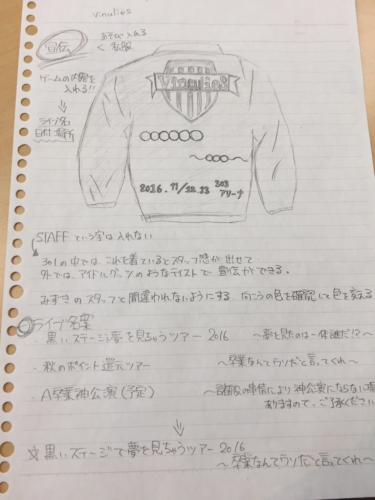 vinulies
宣伝
あそび入れる
< 私服
ゲームの内容を
入れる!!
↓
ライブ名
日付・場所
Vinulies
2016. 11/12.13 301
アリーナ
STAFF という字は入れない
301の中では、これを着ているとスタッフ感が出せて
外では、アイドルグッズのようなテイストで宣伝ができる。
みずきのスタッフと間違われないようにする 向こうの色を確認して色を変える
○ライブ名案
・黒いステージで夢を見ちゃうツアー 2016 〜夢を見たのは一体誰だ!?〜
・秋のポイント還元ツアー 〜卒業なんてウソだと言ってくれ〜
・A卒業神公演(予定) 〜諸般の事情により神公演にならない
ありますので、ご了承ください
↓
黒いステージで夢を見ちゃうツアー 2016
〜卒業なんてウソだと言ってくれ〜